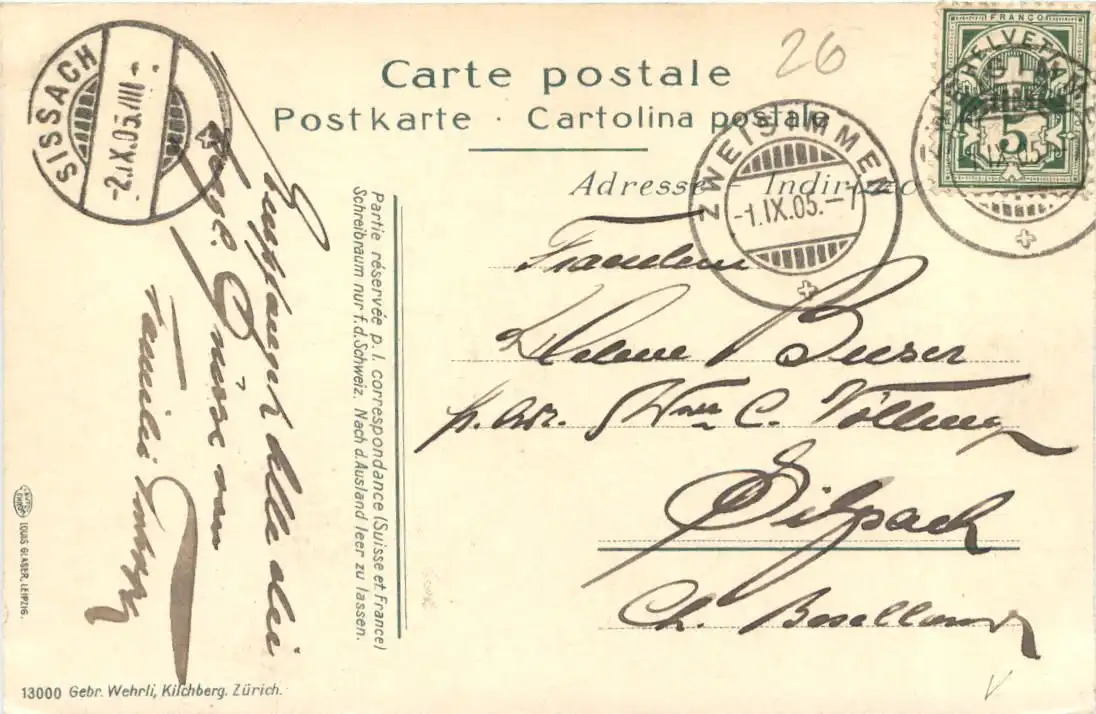 26
Carte postale
Postkarte · Cartolina postale
Adresse - Indirizzo
FRANCO
HELVETIA
5
SISSACH
-2.IX.05.VIII-
ZWEISIMMEN
-1.IX.05.-7
ZWEISIMMEN
IX.05
Partie réservée p. l. correspondance (Suisse et France)
Schreibraum nur f. d. Schweiz. Nach d. Ausland leer zu lassen.
Fräulein
Helene Buser
p. Adr. Wwe C.
Sissach
Ct. Baselland
Empfanget alle die
Grüsse von
Familie
LOUIS GLASER, LEIPZIG.
13000 Gebr. Wehrli, Kilchberg. Zürich.